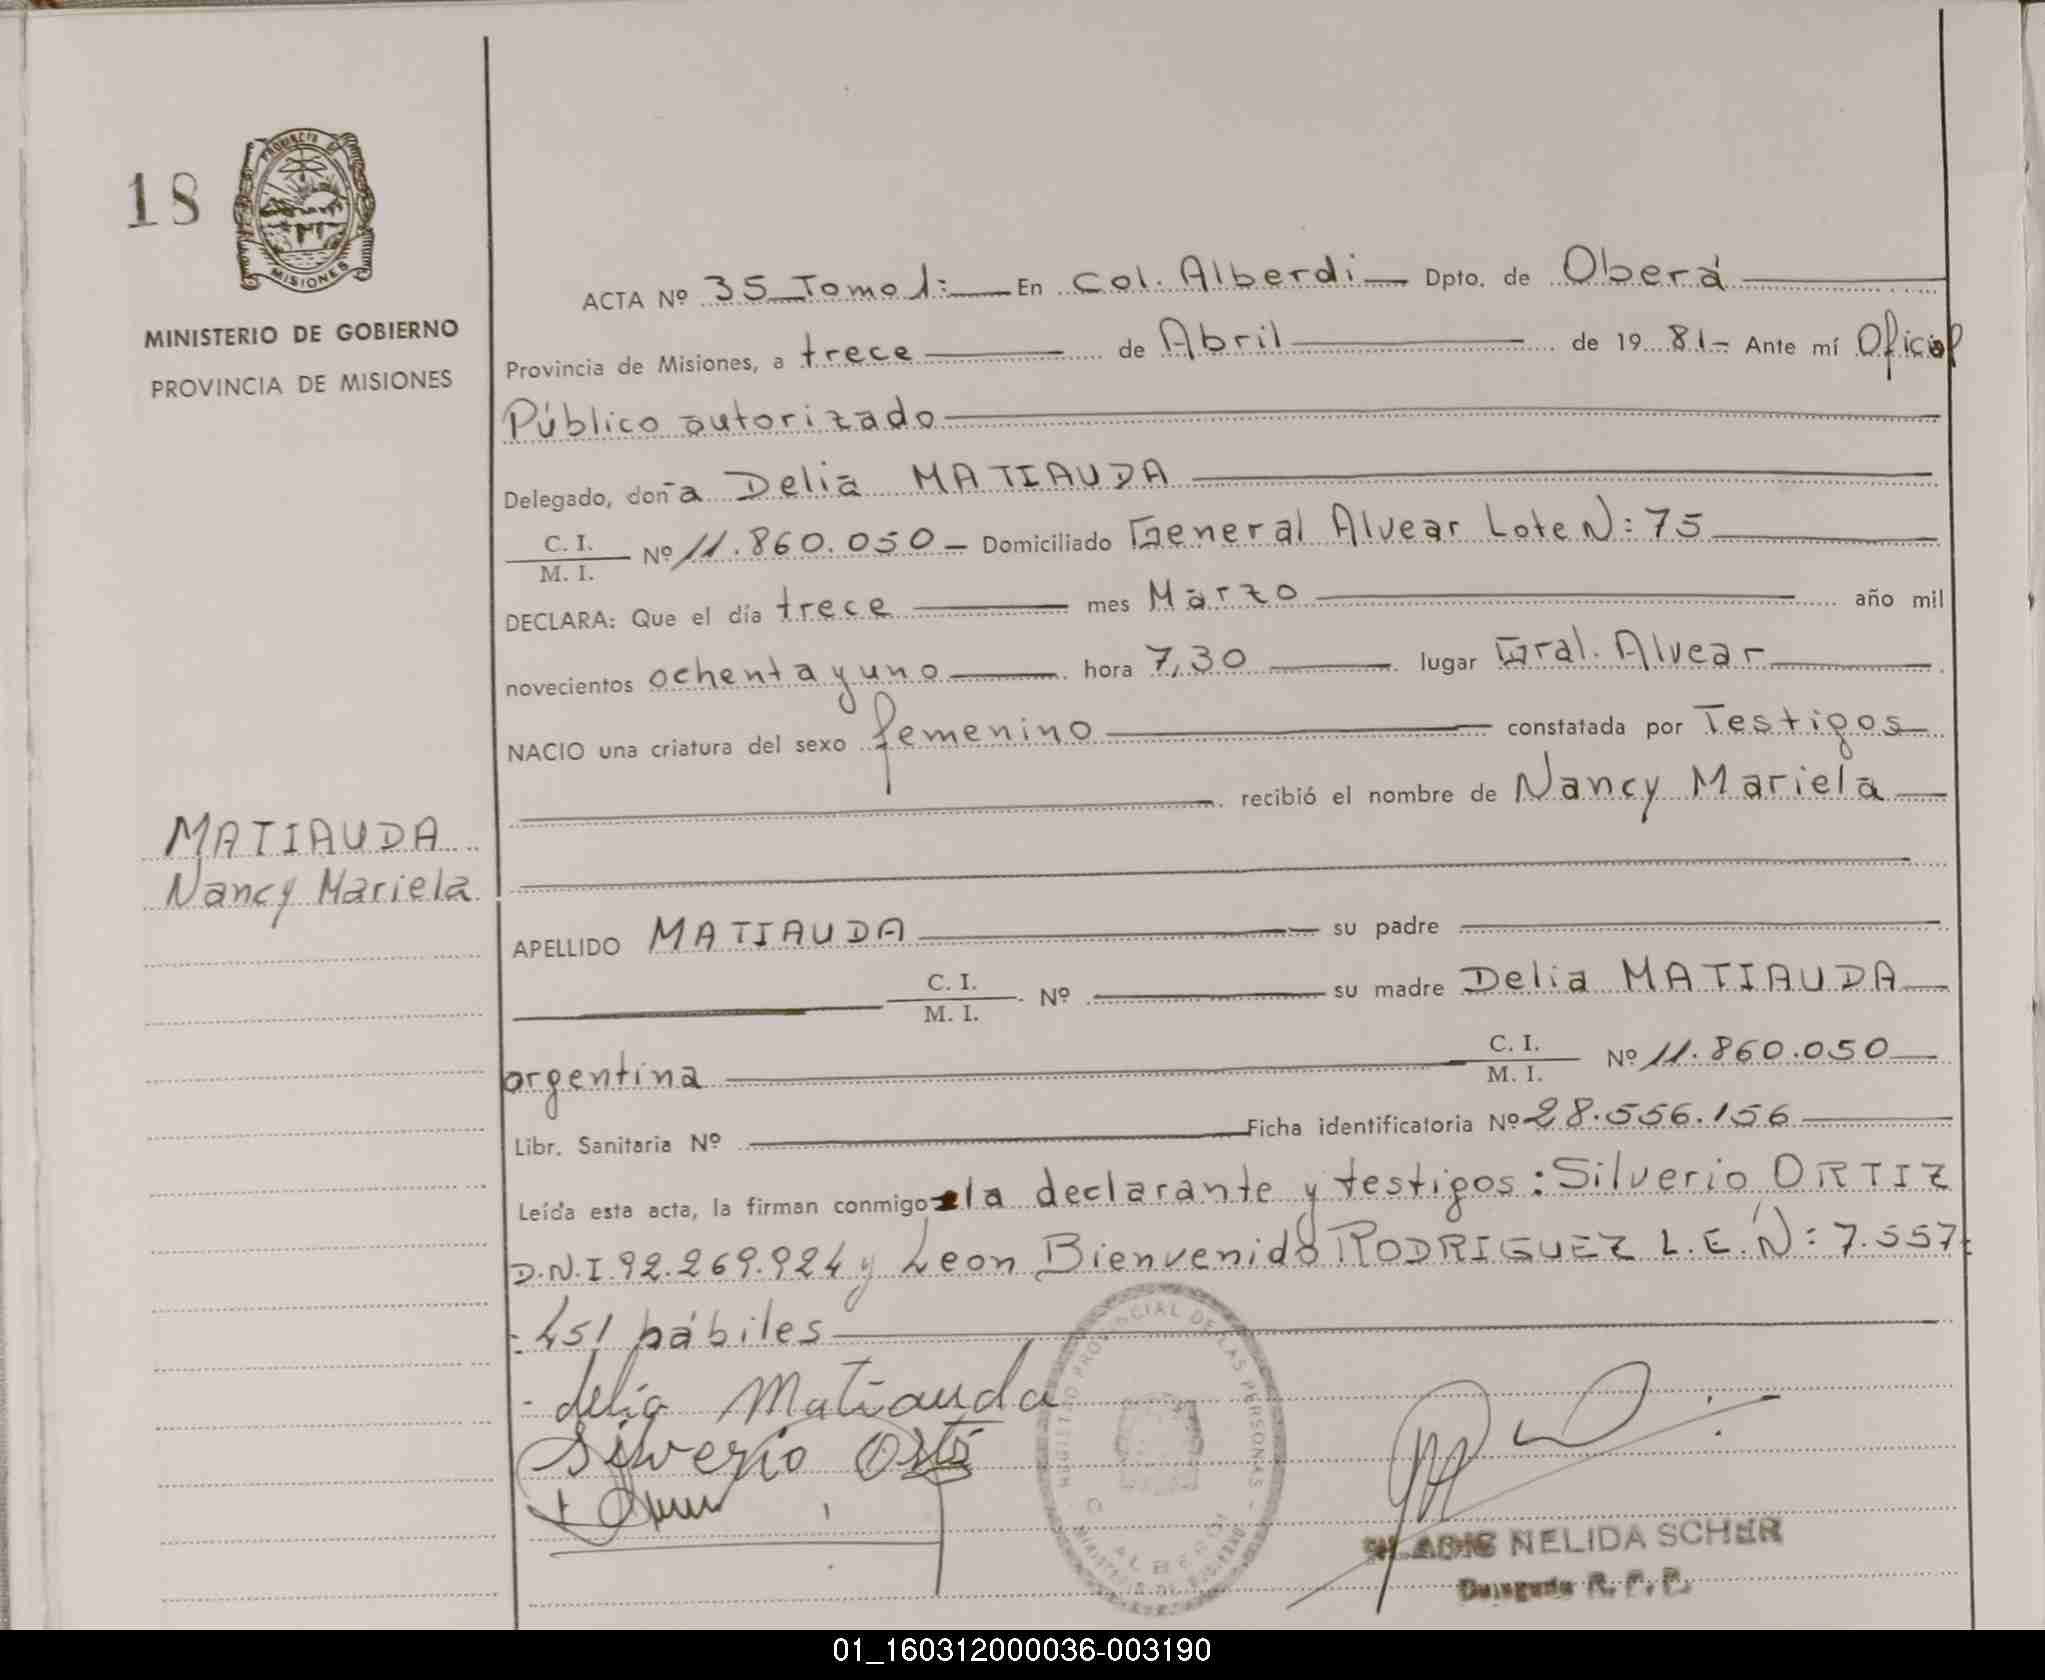 18
PROVINCIA DE
MISIONES
MINISTERIO DE GOBIERNO
PROVINCIA DE MISIONES
ACTA Nº 35 Tomo 1: En Col. Alberdi Dpto. de Oberá
Provincia de Misiones, a trece de Abril de 1981- Ante mí Oficial
Público autorizado
Delegado, doña Delia MATIAUDA
C. I.
M. I. Nº 11.860.050 - Domiciliado General Alvear Lote N: 75
DECLARA: Que el día trece mes Marzo año mil
novecientos ochenta y uno hora 7,30 lugar Gral. Alvear
NACIO una criatura del sexo femenino constatada por Testigos
recibió el nombre de Nancy Mariela
MATIAUDA
Nancy Mariela
APELLIDO MATIAUDA su padre
C. I.
M. I. Nº su madre Delia MATIAUDA
argentina C. I.
M. I. Nº 11.860.050
Libr. Sanitaria Nº Ficha identificatoria Nº 28.556.156
Leída esta acta, la firman conmigo la declarante y testigos: Silverio ORTIZ
D.N.I 92.269.924 y Leon Bienvenido RODRIGUEZ L.E.N: 7.557.
.451 hábiles
delia Matiauda
Silverio Ortiz
REGISTRO PROVINCIAL DE LAS PERSONAS
C. ALBERDI
MINISTERIO DE GOBIERNO
GLADIS NELIDA SCHER
Delegada R. P. P.
01_160312000036-003190